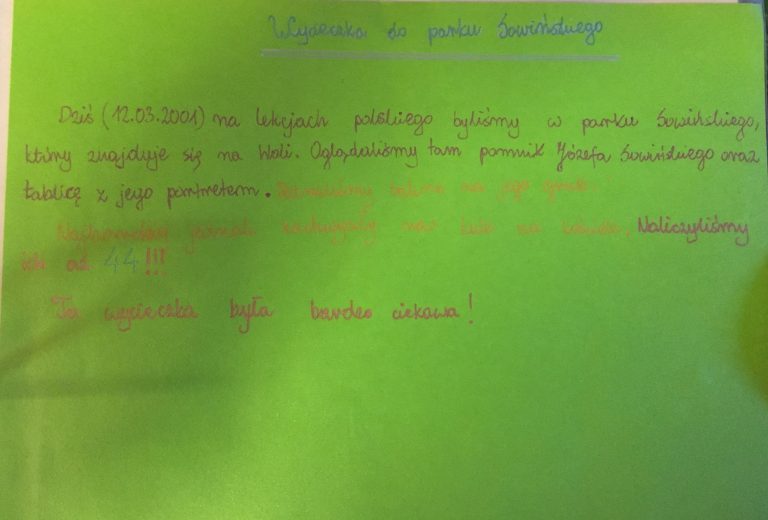 Wycieczka do parku Sowińskiego
Dziś (12.03.2001) na lekcjach polskiego byliśmy w parku Sowińskiego,
który znajduje się na Woli. Oglądaliśmy tam pomnik Józefa Sowińskiego oraz
tablicę z jego portretem. na jego
nas na Naliczyliśmy
ich aż 44!!!
Ta wycieczka była bardzo ciekawa!